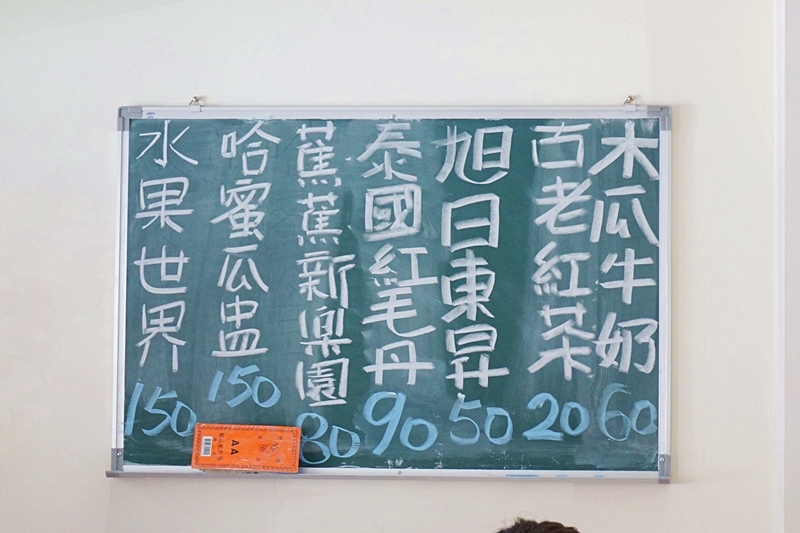 木瓜牛奶60
古老紅茶20
旭日東昇50
泰國紅毛丹90
蕉蕉新樂園80
哈蜜瓜盅150
水果世界150
AA